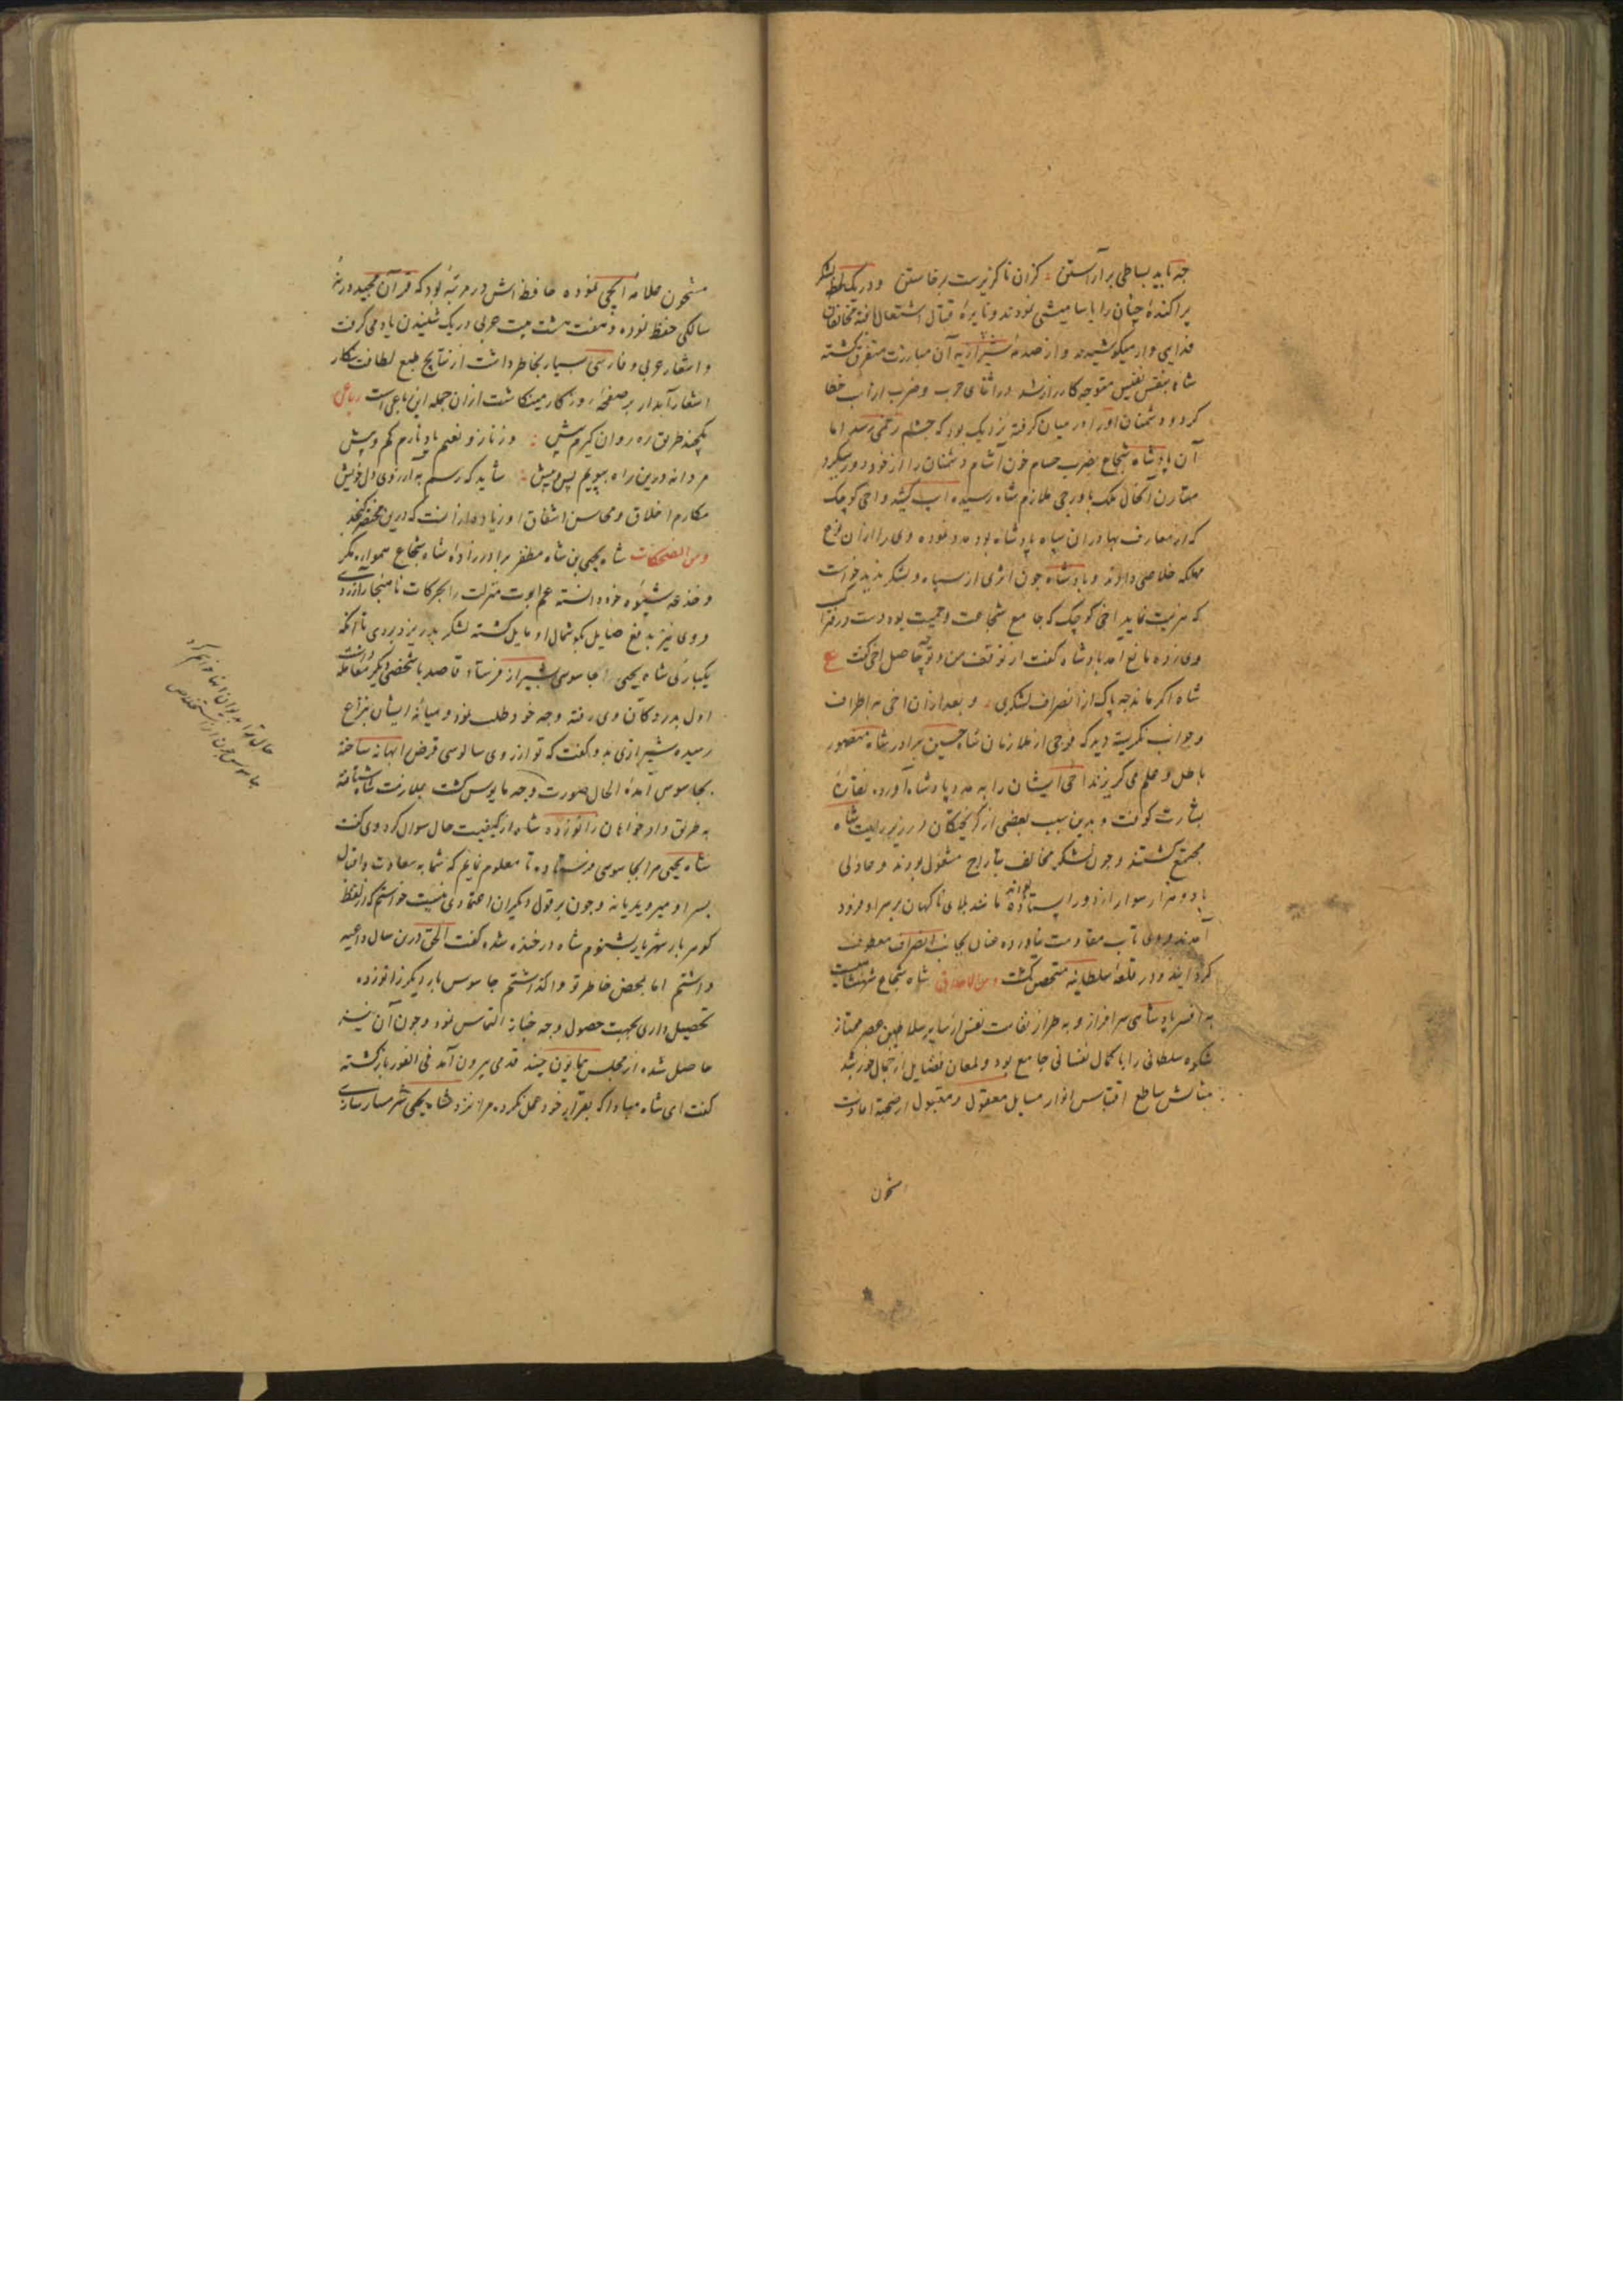 چه باید بساطی برآراستن کزان ناگزیرست برخاستن و در یک لحظه لشکر
پراکندهٔ چنان را یاسامیشی نمودند و نایرهٔ قتال اشتعال یافته مخالفان
فدایی وار میکوشیدند و از صدمهٔ شیرازیه آن مبارزت متفرق کشته
شاه بنفس نفیس متوجه کارزار شد در اثنای حرب و ضرب اسب خطا
کرد و دشمنان اورا در میان گرفته نزدیک بود که چشم زخمی رسد اما
آن پادشاه شجاع بضرب حسام خون آشام دشمنان را از خود دور میکرد
مقارن آنحال ملک باورجی ملازم شاه رسیده اسب کشید و اخی کوچک
که از معارف بهادران سپاه پادشاه بود مدد نموده وی را از آن نوع
مهلکه خلاصی دادند و پادشاه چون اثری از سپاه و لشکر ندید خواست
که هزیمت نماید اخی کوچک که جامع شجاعت و حمیت بود دست در فتراک
وی زده مانع امد پادشاه گفت از توقف من و تو چه حاصل اخی گفت ع
شاه اگر ماند چه باک از انصراف لشکری و بعد ازان اخی به اطراف
و جوانب نگریسته دید که فوجی از ملازمان شاه حسین برادر شاه منصور
با طبل و علم می گریزند اخی ایشان را به مدد پادشاه آورده نقارهٔ
بشارت کوفت و بدین سبب بعضی از گریختگان در زیر رایت شاه
مجتمع گشتند و چون لشکر مخالف بتاراج مشغول بودند و عادلی
با دو هزار سوار از دور ایستاده مانند بلای ناگهان بر سر او فرود
آمدند و وی تاب مقاومت نیاورده عنان بجانب انصراف معطوف
گردانید و در قلعهٔ سلطانیه متحصن گشت و من الاخلاق شاه شجاع شهنشاهیست
به افسر پادشاهی سرافراز و به طراز نفاست نفس از سایر سلاطین عصر ممتاز
شکوه سلطانی را با کمال نفسانی جامع بود و لمعان فضایل از جمال خورشید
مثالش ساطع اقتباس انوار مسایل معقول و مقبول از صحبت
مشحون
مشحون علامه ایجی نموده حافظه اش در مرتبهٔ بود که قرآن مجید در نه
سالگی حفظ نموده و هفت هشت بیت عربی در یک شنیدن یاد می گرفت
و اشعار عربی و فارسی بسیار بخاطر داشت از نتایج طبع لطافت نگار
اشعار آبدار بر صفحهٔ روزگار مینگاشت ازان جمله این رباعی است رباعی
یکچند طریق ره روان گیرم پیش وز ناز و نعیم یاد نارم کم و بیش
مردانه درین راه بپویم پس و پیش شاید که رسم به آرزوی دل خویش
مکارم اخلاق و محاسن اشفاق او زیاده از انست که درین مختصر گنجد
و من المضحکات شاه یحیی بن شاه مظفر برادرزادهٔ شاه شجاع همواره مکر
و خدعه شیوه خود دانسته عم ابوت منزلت را بحرکات ناهنجار آزردی
و وی نیز بدین بگوشمال او مایل گشته لشکر بدر یزد بردی تا آنکه
یکباری شاه یحیی را بجاسوسی بشیراز فرستاد قاصد با شخصی دیگر معامله داشت
اول بدر دکان وی رفته وجه خود طلب نمود و میانهٔ ایشان نزاع
رسیده شیرازی بدو گفت که تو از روی سالوسی قرض را بهانه ساخته
بجاسوسی آمدهٔ الحال صورت وجه مایوس گشت بملازمت شاه شتافته
به طریق دادخواهان زانو زده شاه از کیفیت حال سوال کرد وی گفت
شاه یحیی مرا بجاسوسی فرستاده تا معلوم نمایم که شما به سعادت و اقبال
بسر او میروید یا نه و چون بر قول دیگران اعتمادی نیست خواستم که از لفظ
گوهر بار شهریار بشنوم شاه در خنده شده گفت الحق درین سال داعیه
داشتم اما بمحض خاطر تو واگذاشتم جاسوس بار دیگر زانو زده
تحصیلداری بجهت حصول وجه خیانه التماس نمود و چون آن نیز
حاصل شد از مجلس همایون چند قدمی بیرون آمد فی الفور بازگشته
گفت ای شاه مبادا که بقرار خود عمل نکرده مرا نزد شاه یحیی شرمسار سازی